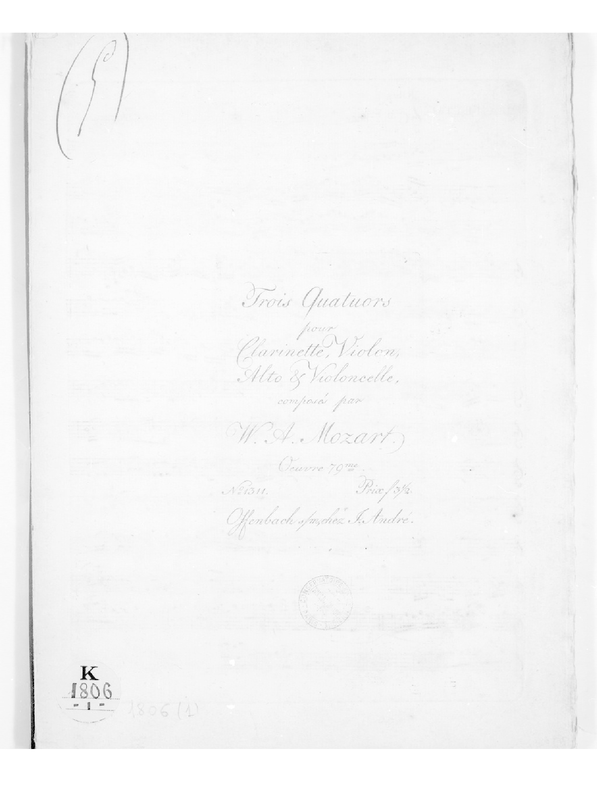 Trois Quatuors
pour
Clarinette, Violon,
Alto & Violoncelle,
composé par
W. A. Mozart.
Oeuvre 79me
Prix f 3½
Offenbach s/m, chez J. André.
K
1806
- 1 -
1806 (1)